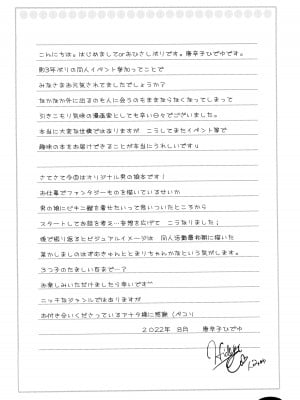 こんにちは。はじめましてorおひさしぶりです。唐辛子ひでゆです。
約3年ぶりの同人イベント参加ってことで
みなさまお元気されてましたでしょうか?
なかなか外に出るのも人に会うのもままならなくなってしまって
引きこもり気味の漫画家としても辛い日々でございます。
本当に大変な仕様ではありますが、こうしてまたイベント等で
趣味の本をお届けできることが本当にうれしいですu
さてさて今回はオリジナル男の娘本です!
お仕事でファンタジーものを描いているせいか
男の娘にビキニ鎧を着せたいって思いついたところから
スタートしてお話を考え…妄想を広げて こうなりました;
後で振り返るとビジュアルイメージは 同人活動最初期に描いた
某かしましのはずむきゅんととまりちゃんかなという気がします。
うつ子のたましい百まで…?
お楽しみいただけましたら幸いです^^
ニッチなジャンルではありますが
お付き合いくださっているアナタ様に感謝(ペコリ
2022年 8月 唐辛子ひでゆ